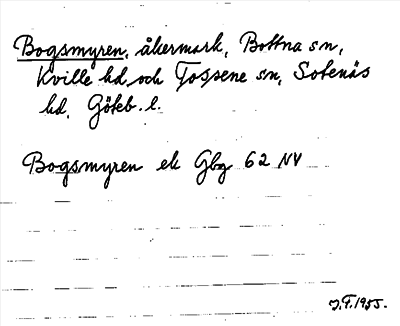 Bogsmyren, åkermark, Bottna sn,
Kville hd och Tossene sn, Sotenäs
hd, Göteb. l.
Bogsmyren ek Gbg 62 NV
J.F. 1955.